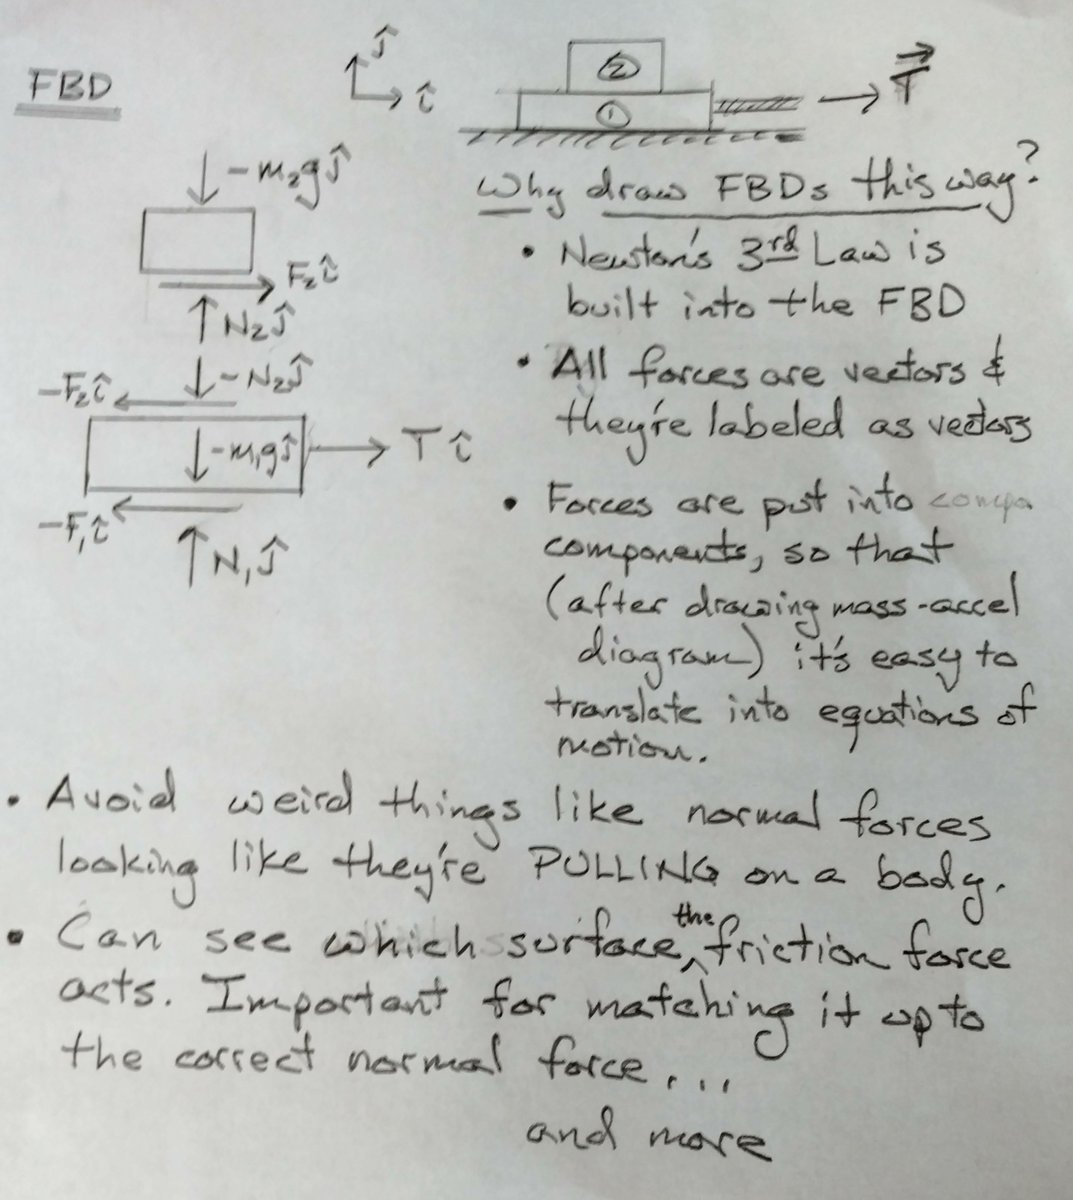 FBD
ĵ
î
②
①
T⃗
-m₂gĵ
F₂î
N₂ĵ
-N₂ĵ
-F₂î
-m₁gĵ
Tî
-F₁î
N₁ĵ
Why draw FBDs this way?
• Newton's 3rd Law is
built into the FBD
• All forces are vectors &
they're labeled as vectors
• Forces are put into compo
components, so that
(after drawing mass-accel
diagram) it's easy to
translate into equations of
motion.
• Avoid weird things like normal forces
looking like they're PULLING on a body.
• Can see which surface the friction force
acts. Important for matching it up to
the correct normal force...
and more